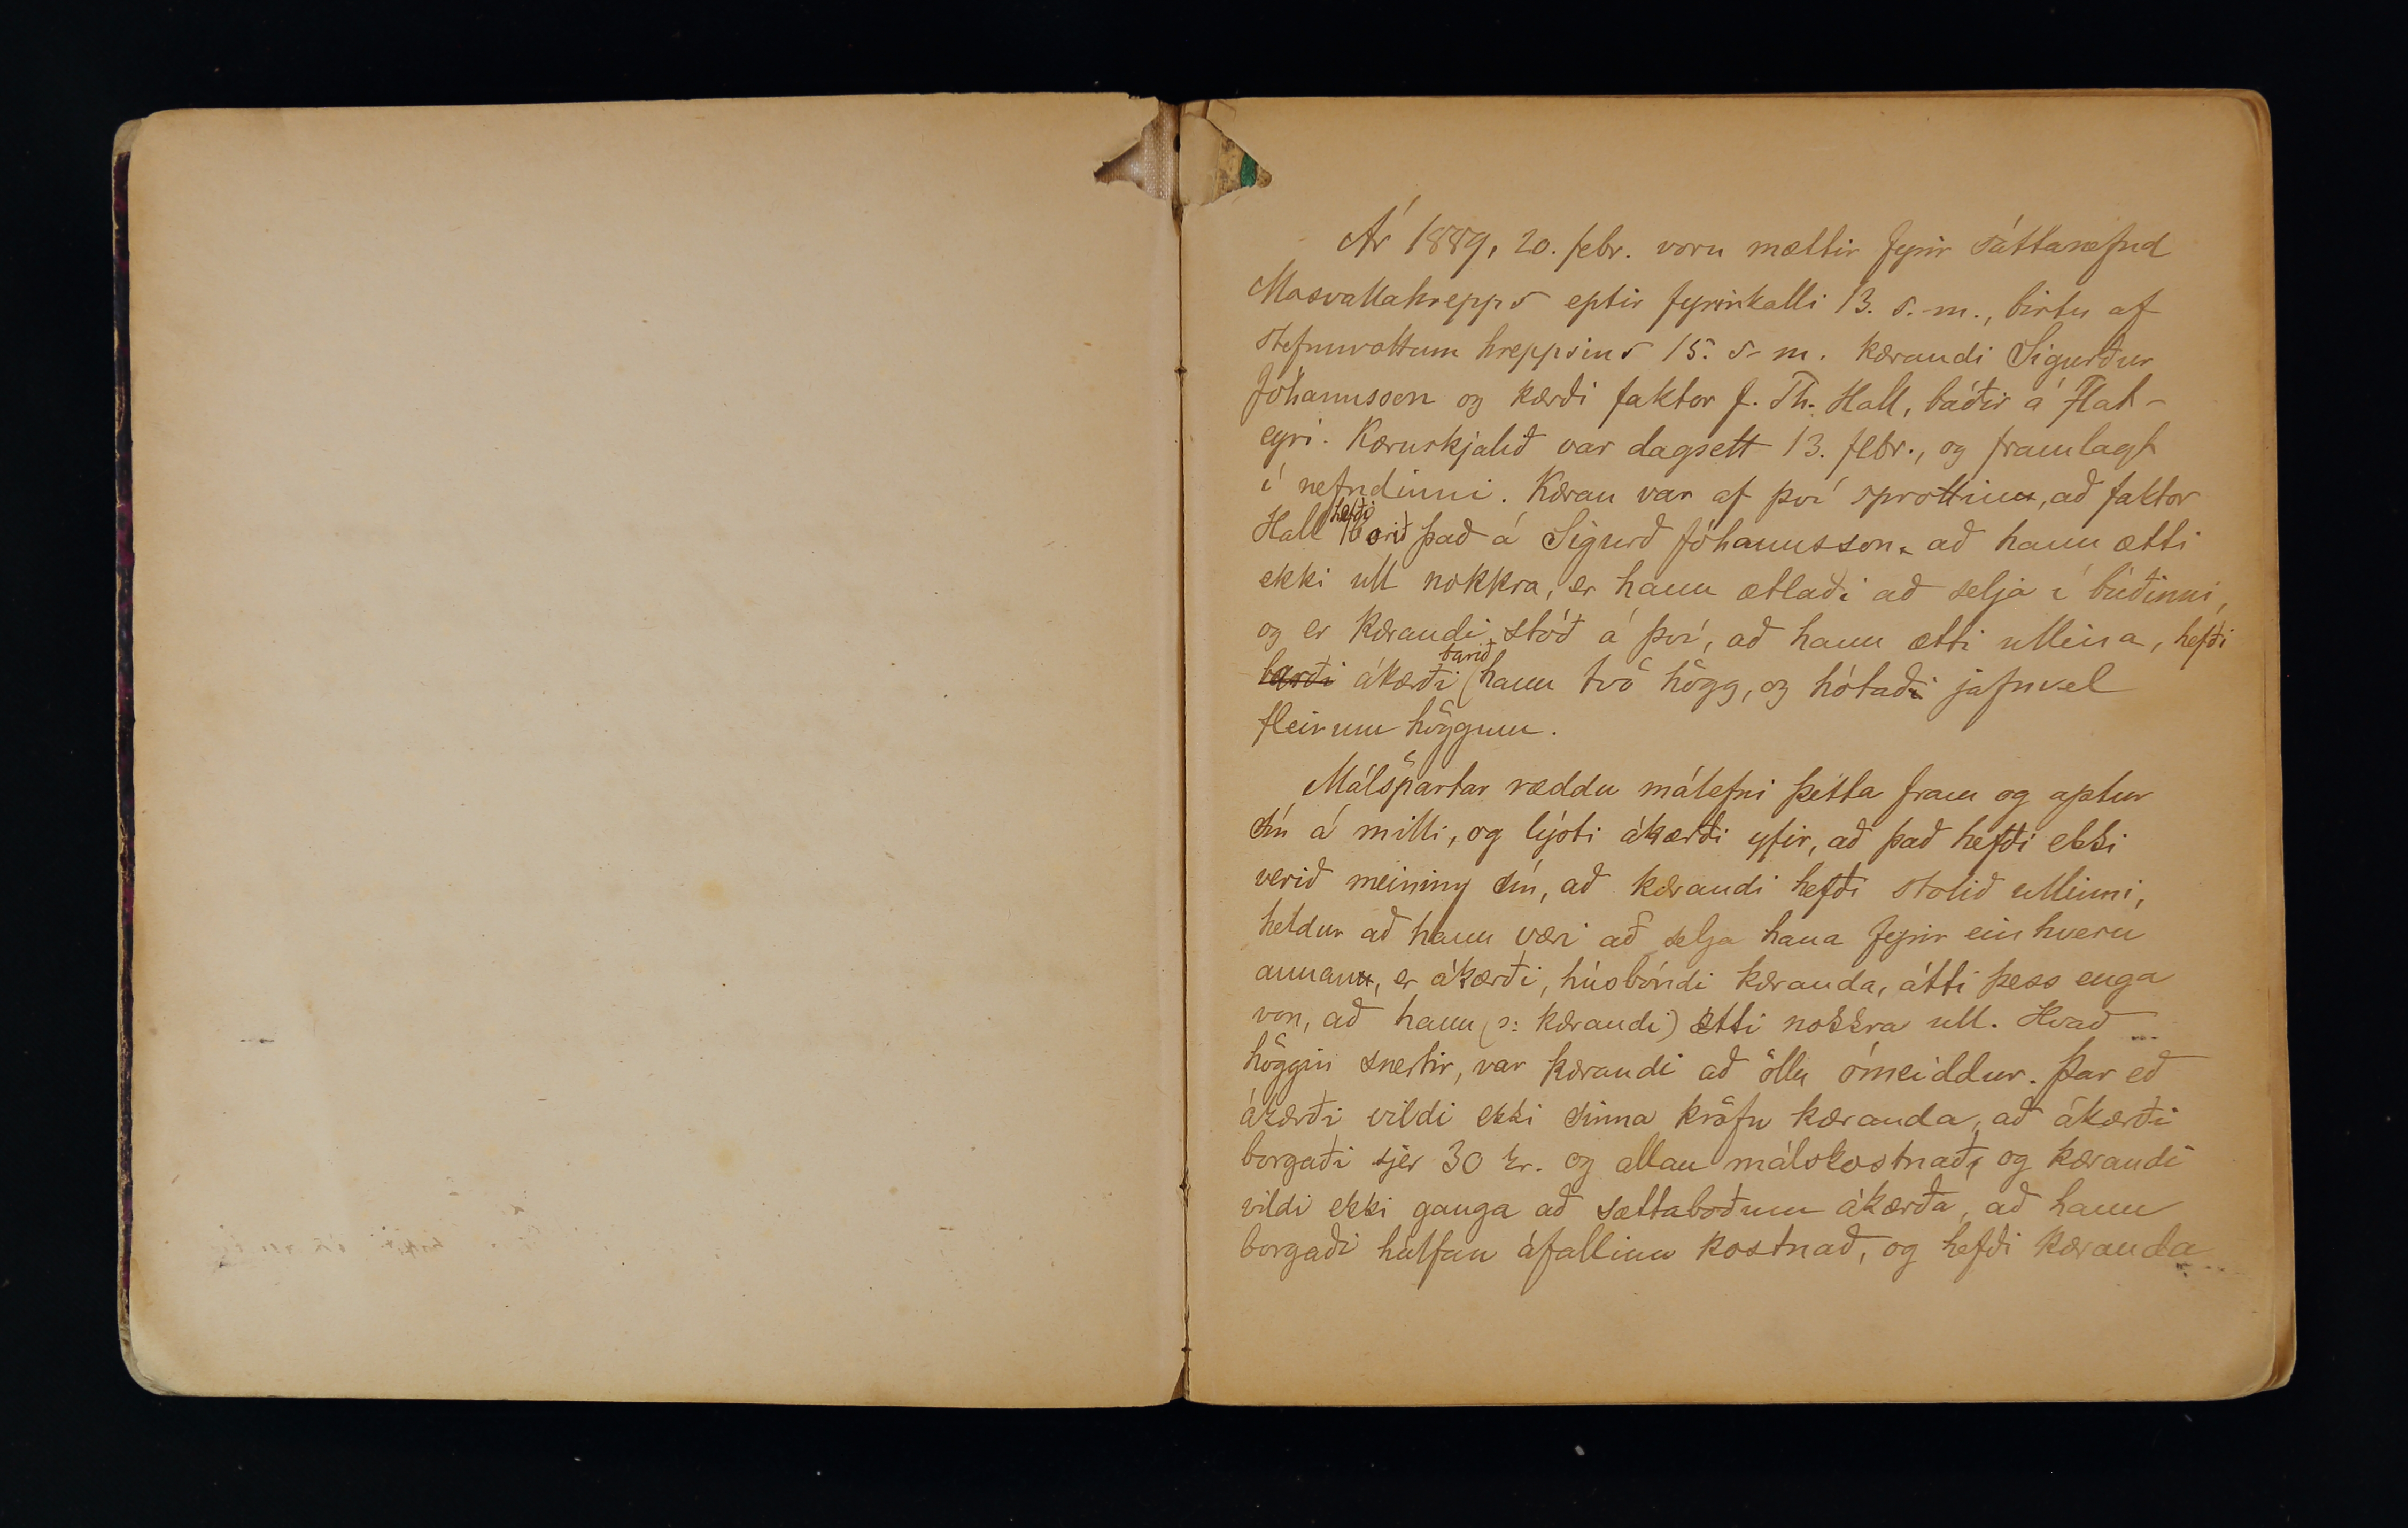 Ár 1889, 20. febr. voru mættir fyrir sáttanefnd
Mosvallahrepps eptir fyrirkalli 13. s. m., birtu af
stefnuvottum hreppsins 15. s. m. kærandi Sigurður
Jóhannsson og kærði faktor J. Th. Hall, báðir á Flat-
eyri. Kæruskjalið var dagsett 13. febr., og framlagt
í nefndinni. Kæran var af því sprottin, að faktor
Hall hefði borið það á Sigurð Jóhannsson, að hann ætti
ekki ull nokkra, er hann ætlaði að selja í búðinni,
og er kærandi stóð á því, að hann ætti ullina, hefði
barði ákærði barið hann tvö högg, og hótaði jafnvel
fleirum höggum.
Málspartar ræddu málefni þetta fram og aptur
sín á milli, og lýsti ákærði yfir, að það hefði ekki
verið meining sín, að kærandi hefði stolið ullinni,
heldur að hann væri að selja hana fyrir einhvern
annan, er ákærði, húsbóndi kæranda, átti þess enga
von, að hann (ɔ: kærandi) ætti nokkra ull. Hvað
höggin snertir, var kærandi að öllu ómeiddur. Þar eð
ákærði vildi ekki sinna kröfu kæranda, að ákærði
borgaði sjer 30 kr. og allan málskostnað, og kærandi
vildi ekki ganga að sættaboðum ákærða, að hann
borgaði hálfan áfallinn kostnað, og hefði kæranda